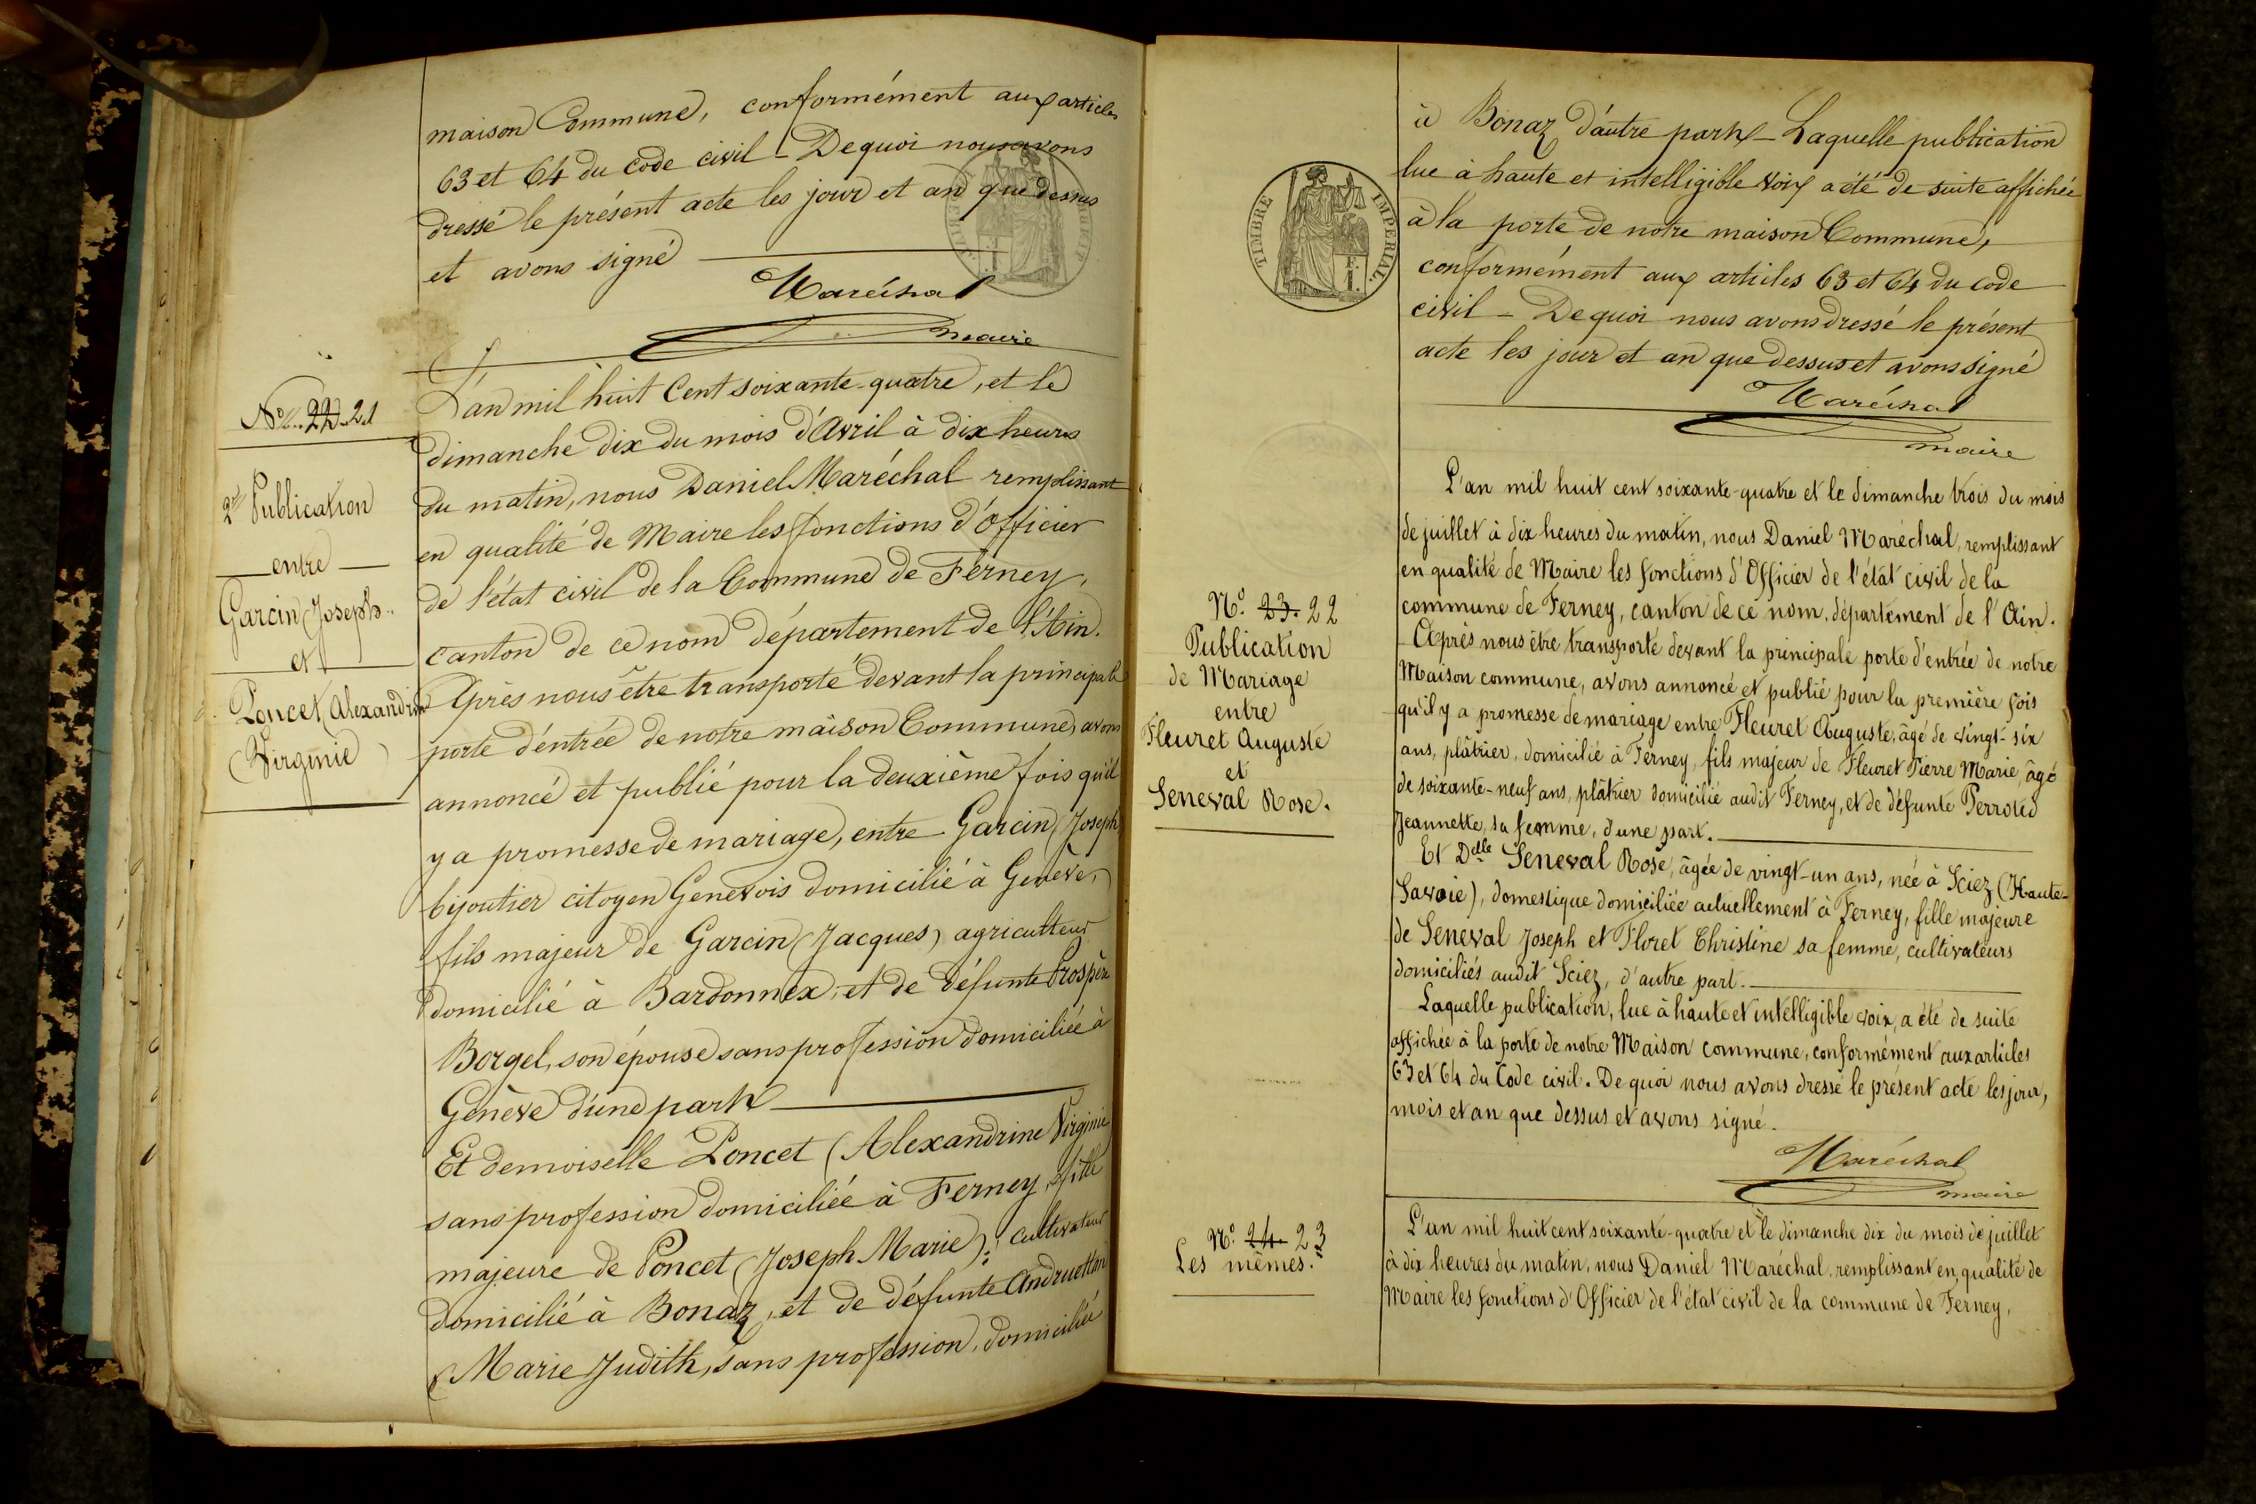 maison Commune, conformément aux articles
63 et 64 du code civil – De quoi nous avons
dressé le présent acte les jour et an que dessus
et avons signé
Maréchal
maire
No. 22. 21
2e Publication
entre
Garcin Joseph
et
Poncet Alexandrine
Virginie
L'an mil huit Cent soixante-quatre, et le
dimanche dix du mois d'Avril à dix heures
du matin, nous Daniel Maréchal remplissant
en qualité de Maire les fonctions d'Officier
de l'état civil de la Commune de Ferney,
canton de ce nom département de l'Ain.
Après nous être transporté devant la principale
porte d'entrée de notre maison Commune, avons
annoncé et publié pour la deuxième fois qu'il
y a promesse de mariage, entre Garcin (Joseph)
bijoutier citoyen Genevois domicilié à Genève,
fils majeur de Garcin (Jacques) agriculteur
domicilié à Bardonnex, et de défunte Prospère
Borgel, son épouse sans profession domiciliée à
Genève d'une part
Et demoiselle Poncet (Alexandrine Virginie
sans profession domiciliée à Ferney, fille
majeure de Poncet (Joseph Marie), cultivateur
domicilié à Bonaz, et de défunte
Marie Judith, sans profession, domiciliée
TIMBRE IMPERIAL
à Bonaz d'autre part – Laquelle publication
lue à haute et intelligible voix a été de suite affichée
à la porte de notre maison Commune,
conformément aux articles 63 et 64 du code
civil – De quoi nous avons dressé le présent
acte les jour et an que dessus et avons signé
Maréchal
maire
No. 23. 22
Publication
de Mariage
entre
Fleuret Auguste
et
Seneval Rose.
L'an mil huit cent soixante-quatre et le dimanche trois du mois
de juillet à dix heures du matin, nous Daniel Maréchal, remplissant
en qualité de Maire les fonctions d'Officier de l'état civil de la
commune de Ferney, canton de ce nom, département de l'Ain.
Après nous être transporté devant la principale porte d'entrée de notre
Maison commune, avons annoncé et publié pour la première fois
qu'il y a promesse de mariage entre Fleuret Auguste, âgé de vingt-six
ans, plâtrier, domicilié à Ferney, fils majeur de Fleuret Pierre Marie, âgé
de soixante-neuf ans, plâtrier domicilié audit Ferney, et de défunte
Jeannette, sa femme, d'une part.
Et Delle Seneval Rose, âgée de vingt-un ans, née à Sciez (Haute-
Savoie), domestique domiciliée actuellement à Ferney, fille majeure
de Seneval Joseph et Floret Christine sa femme, cultivateurs
domiciliés audit Sciez, d'autre part.
Laquelle publication, lue à haute et intelligible voix, a été de suite
affichée à la porte de notre Maison commune, conformément aux articles
63 et 64 du Code civil. De quoi nous avons dressé le présent acte les jour,
mois et an que dessus et avons signé.
Maréchal
maire
No. 24. 23
Les mêmes.
L'an mil huit cent soixante-quatre et le dimanche dix du mois de juillet
à dix heures du matin, nous Daniel Maréchal, remplissant en qualité de
Maire les fonctions d'Officier de l'état civil de la commune de Ferney,